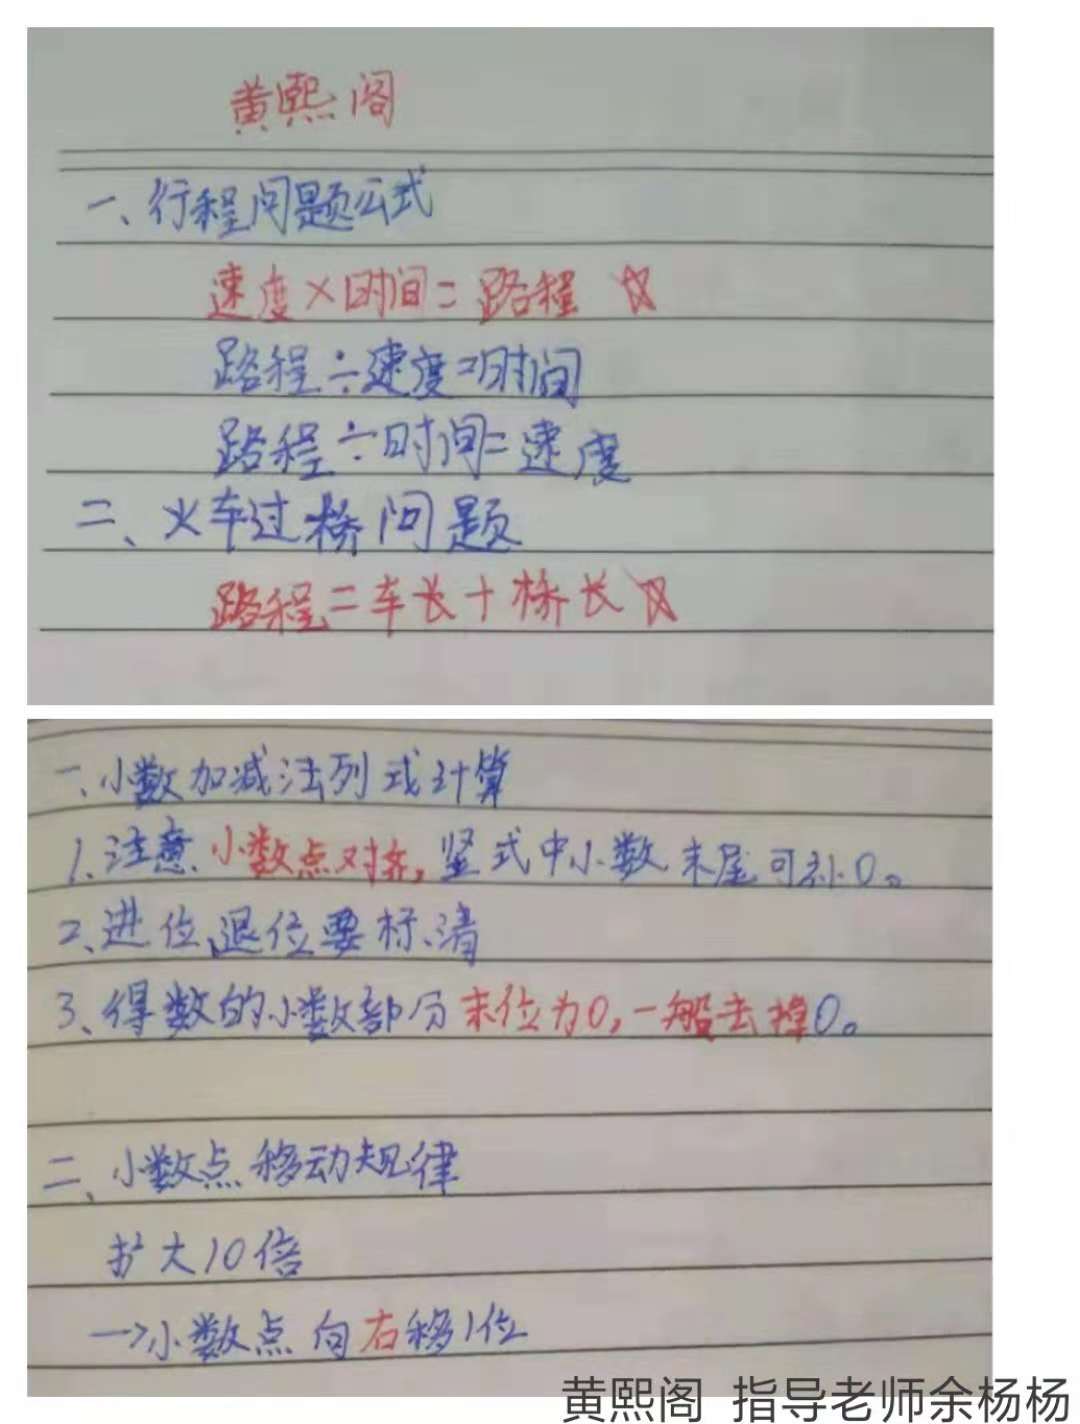 黄熙阁
一、行程问题公式
速度×时间=路程 ☆
路程÷速度=时间
路程÷时间=速度
二、火车过桥问题
路程=车长+桥长 ☆
一、小数加减法列式计算
1、注意小数点对齐,竖式中小数末尾可补0。
2、进位、退位要标清
3、得数的小数部分末位为0,一般去掉0。
二、小数点移动规律
扩大10倍
→小数点向右移1位
黄熙阁 指导老师余杨杨